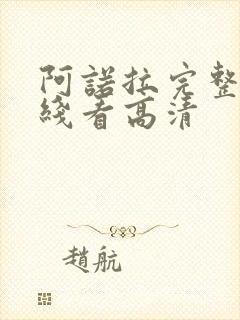 阿諾拉完整
綫看高清
趙航